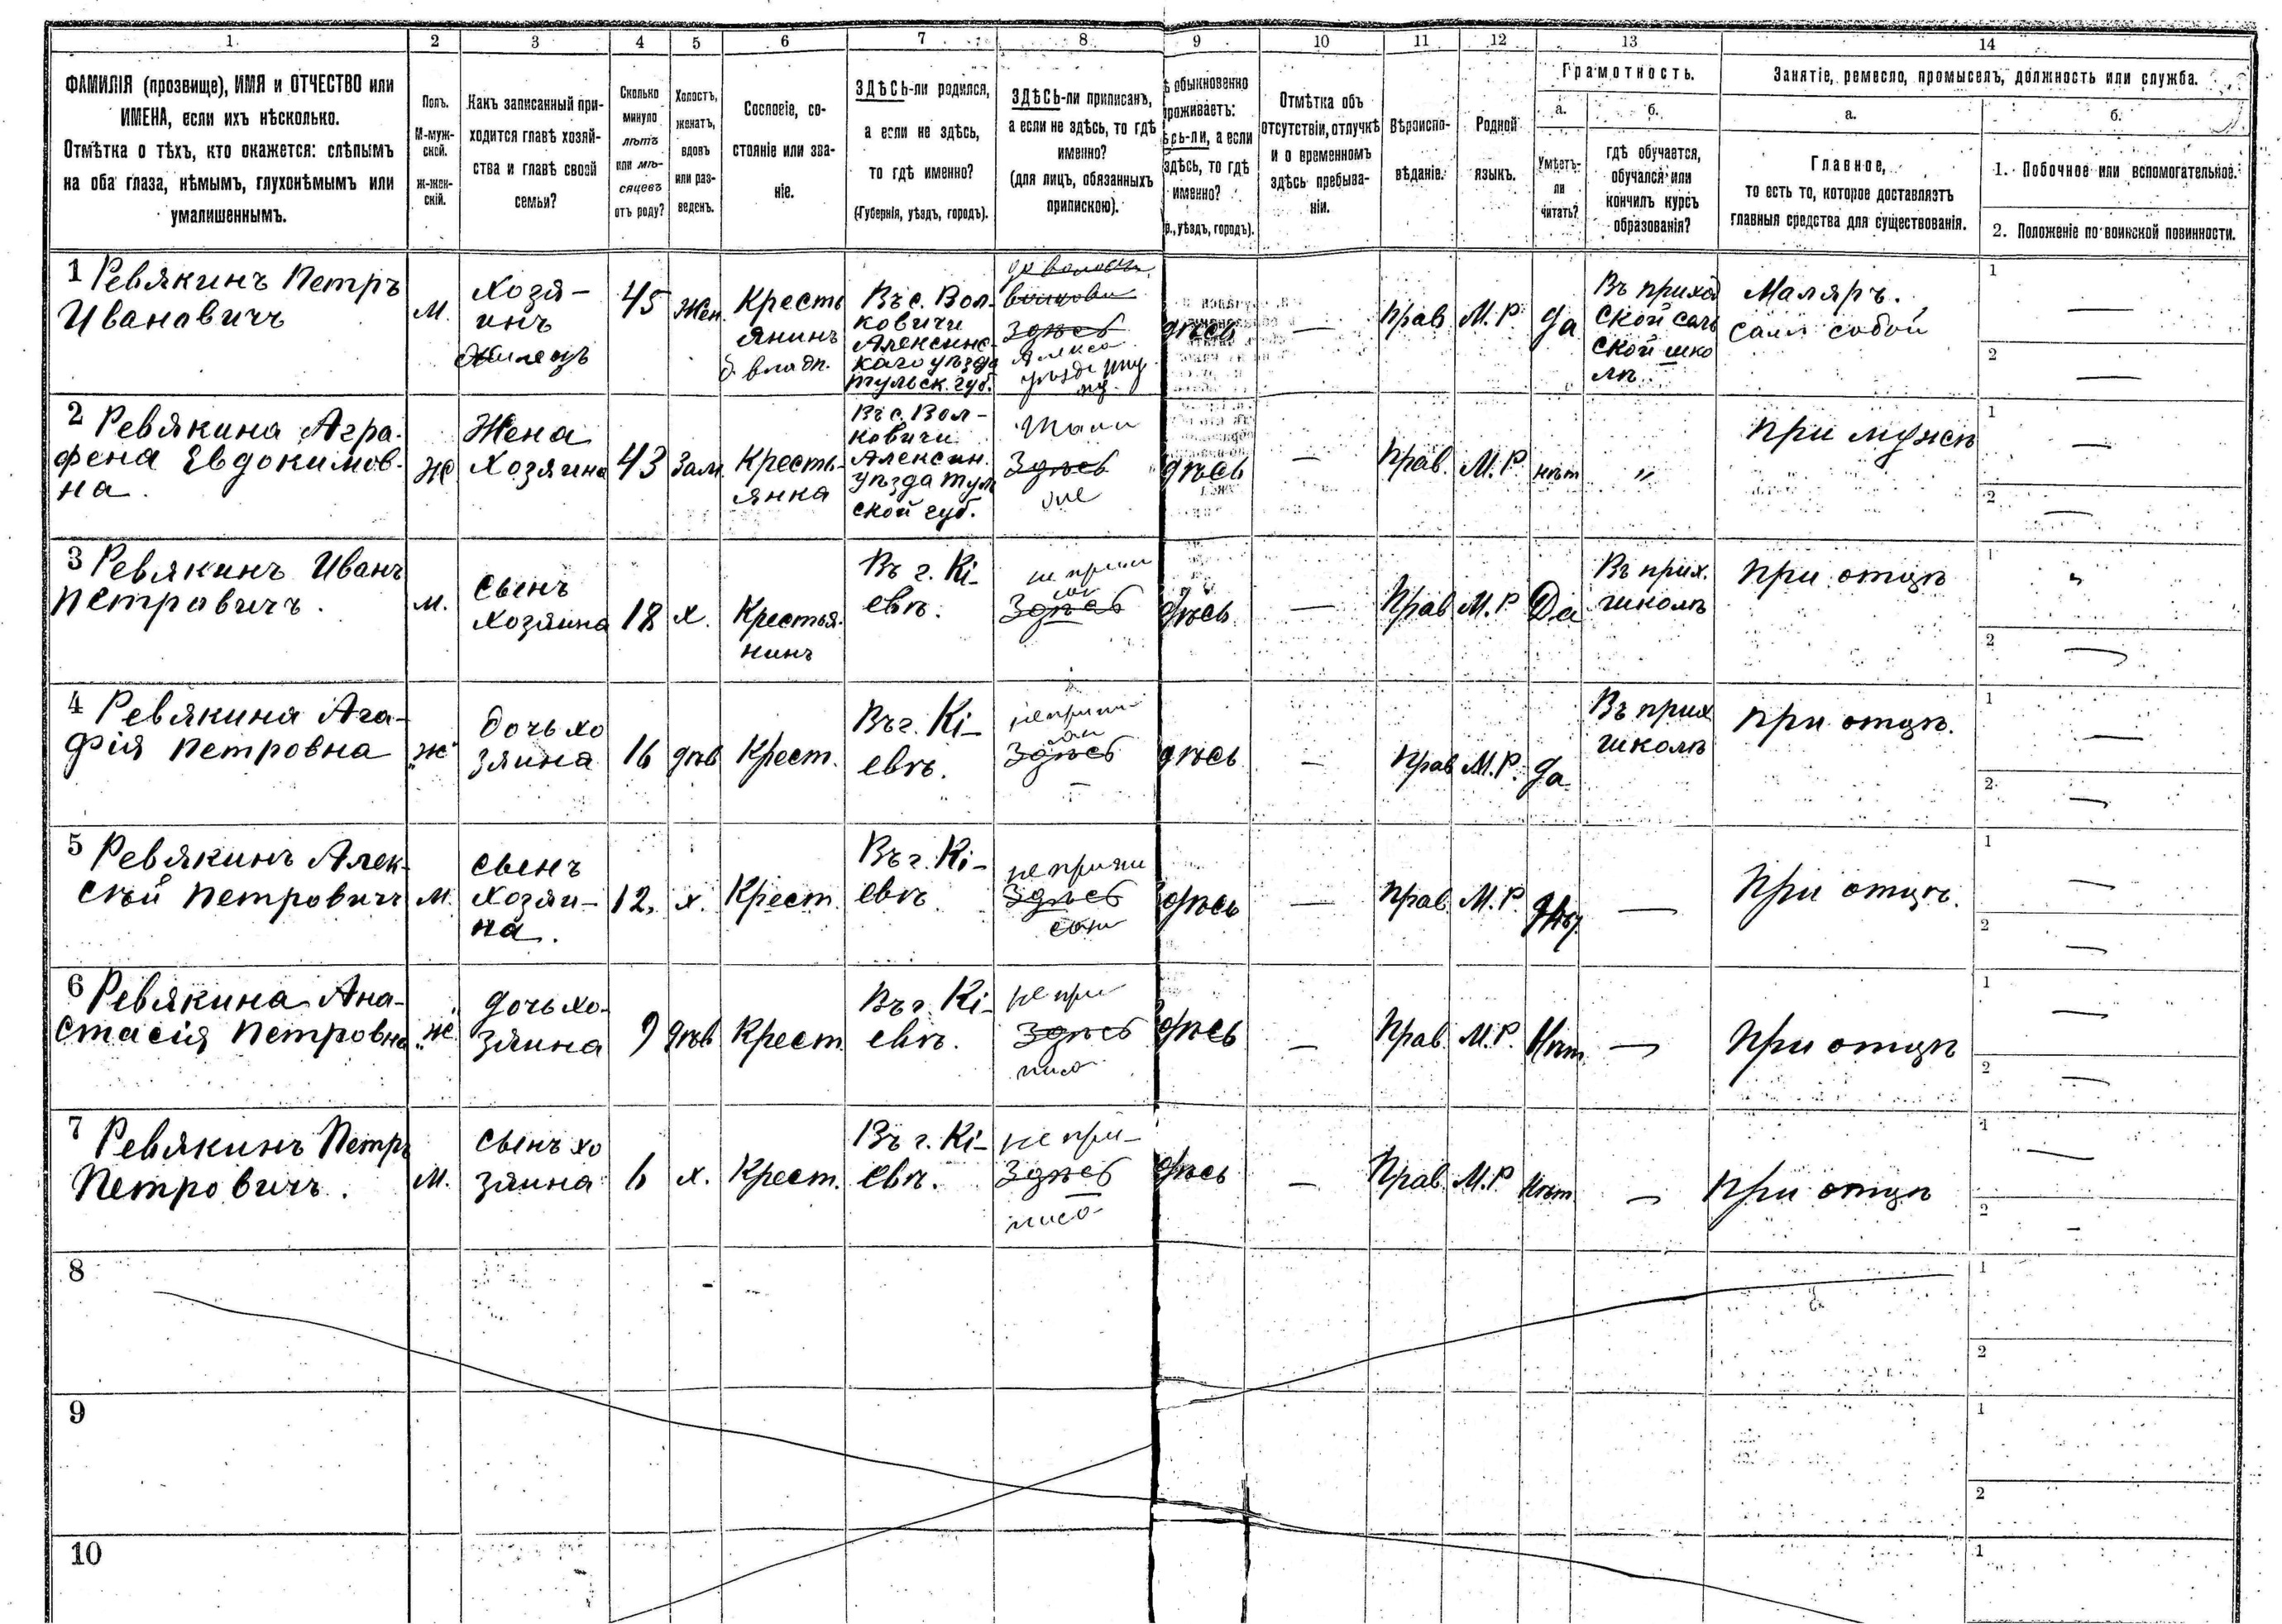 1. 2 3 4 5 6 7 8 9 10 11 12 13 14
ФАМИЛІЯ (прозвище), ИМЯ и ОТЧЕСТВО или
ИМЕНА, если ихъ нѣсколько.
Отмѣтка о тѣхъ, кто окажется: слѣпымъ
на оба глаза, нѣмымъ, глухонѣмымъ или
умалишеннымъ.
Полъ.
М-муж-
ской.
Ж-жен-
скій.
Какъ записанный при-
ходится главѣ хозяй-
ства и главѣ своей
семьи?
Сколько
минуло
лѣтъ
или мѣ-
сяцевъ
отъ роду?
Холостъ,
женатъ,
вдовъ
или раз-
веденъ.
Сословіе, со-
стояніе или зва-
ніе.
ЗДѢСЬ-ли родился,
а если не здѣсь,
то гдѣ именно?
(Губернія, уѣздъ, городъ).
ЗДѢСЬ-ли приписанъ,
а если не здѣсь, то гдѣ
именно?
(для лицъ, обязанныхъ
припискою).
ѣ обыкновенно
роживаетъ:
ѣсь-ли, а если
здѣсь, то гдѣ
именно?
р., уѣздъ, городъ).
Отмѣтка объ
отсутствіи, отлучкѣ
и о временномъ
здѣсь пребыва-
ніи.
Вѣроиспо-
вѣданіе.
Родной
языкъ.
Грамотность.
а.
Умѣетъ-
ли
читать?
б.
гдѣ обучается,
обучался или
кончилъ курсъ
образованія?
Занятіе, ремесло, промыселъ, должность или служба.
а.
Главное,
то есть то, которое доставляетъ
главныя средства для существованія.
б.
1. Побочное или вспомогательное.
2. Положеніе по воинской повинности.
1 Ревякинъ Петръ
Ивановичъ
М.
Хозя-
инъ
45
Жен.
Кресть
янинъ
б. владѣ.
Въ с. Вол-
ковичи
Алексинс-
каго уѣзда
Тульск. губ.
здѣсь
дѣсь
—
Прав
М. Р.
Да
Въ приход
ской сель
ской шко
лѣ.
Маляръ.
самъ собой
1
—
2
—
2 Ревякина Агра-
фена Евдокимов-
на.
Ж
Жена
Хозяина
43
Зам.
Кресть-
янка
Въ с. Вол-
ковичи
Алексин.
уѣзда Тул
ской губ.
Тамъ
Здѣсь
же
дѣсь
—
Прав.
М. Р.
нѣт
"
При мужѣ
1
—
2
—
3 Ревякинъ Иванъ
Петровичъ.
М.
Сынъ
Хозяина
18
Х.
Крестья-
нинъ
Въ г. Кі-
евѣ.
Здѣсь
дѣсь
—
Прав
М. Р
Да
Въ прих.
школѣ
При отцѣ
1
"
2
—
4 Ревякина Ага-
фія Петровна
Ж
Дочь хо
зяина
16
дѣв
Крест.
Въ г. Кі-
евѣ.
Здѣсь
дѣсь
—
Прав
М. Р.
Да
Въ прих
школѣ
При отцѣ.
1
—
2
—
5 Ревякинъ Алек-
сѣй Петровичъ
М.
Сынъ
Хозяи-
на.
12.
х.
Крест.
Въ г. Кі-
евѣ
Здѣсь
дѣсь
—
Прав.
М. Р.
—
При отцѣ.
1
—
2
—
6 Ревякина Ана-
стасія Петровна
Ж
Дочь хо-
зяина
9
дѣв
Крест
Въ г. Кі-
евѣ.
не при
Здѣсь
писа
дѣсь
—
Прав.
М. Р.
Нѣт
—
При отцѣ
1
—
2
—
7 Ревякинъ Петръ
Петровичъ.
М.
Сынъ хо
зяина
6
х.
Крест.
Въ г. Кі-
евѣ.
не при-
Здѣсь
писа
дѣсь
—
Прав.
М. Р
Нѣт
—
При отцѣ
1
—
2
—
8
1
2
9
1
2
10
1